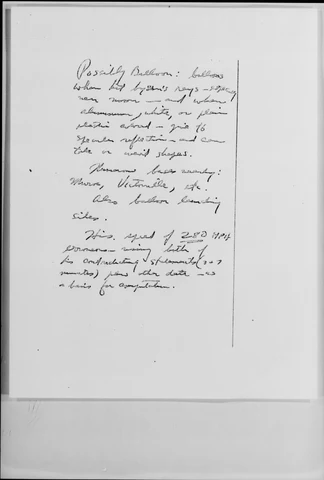 Possibly Balloon: balloons
when hit by sun's rays –
near moon – and when
aluminum, white, or plain
plastic
specular reflection – and can
take on weird shapes.
bases nearby:
Muroc, Victorville, etc.
Also balloon launching
sites.
His speed of 280 MPH
– using both of
his contradictory statements (3 + 7
minutes) plus other data – as
a basis for computation.